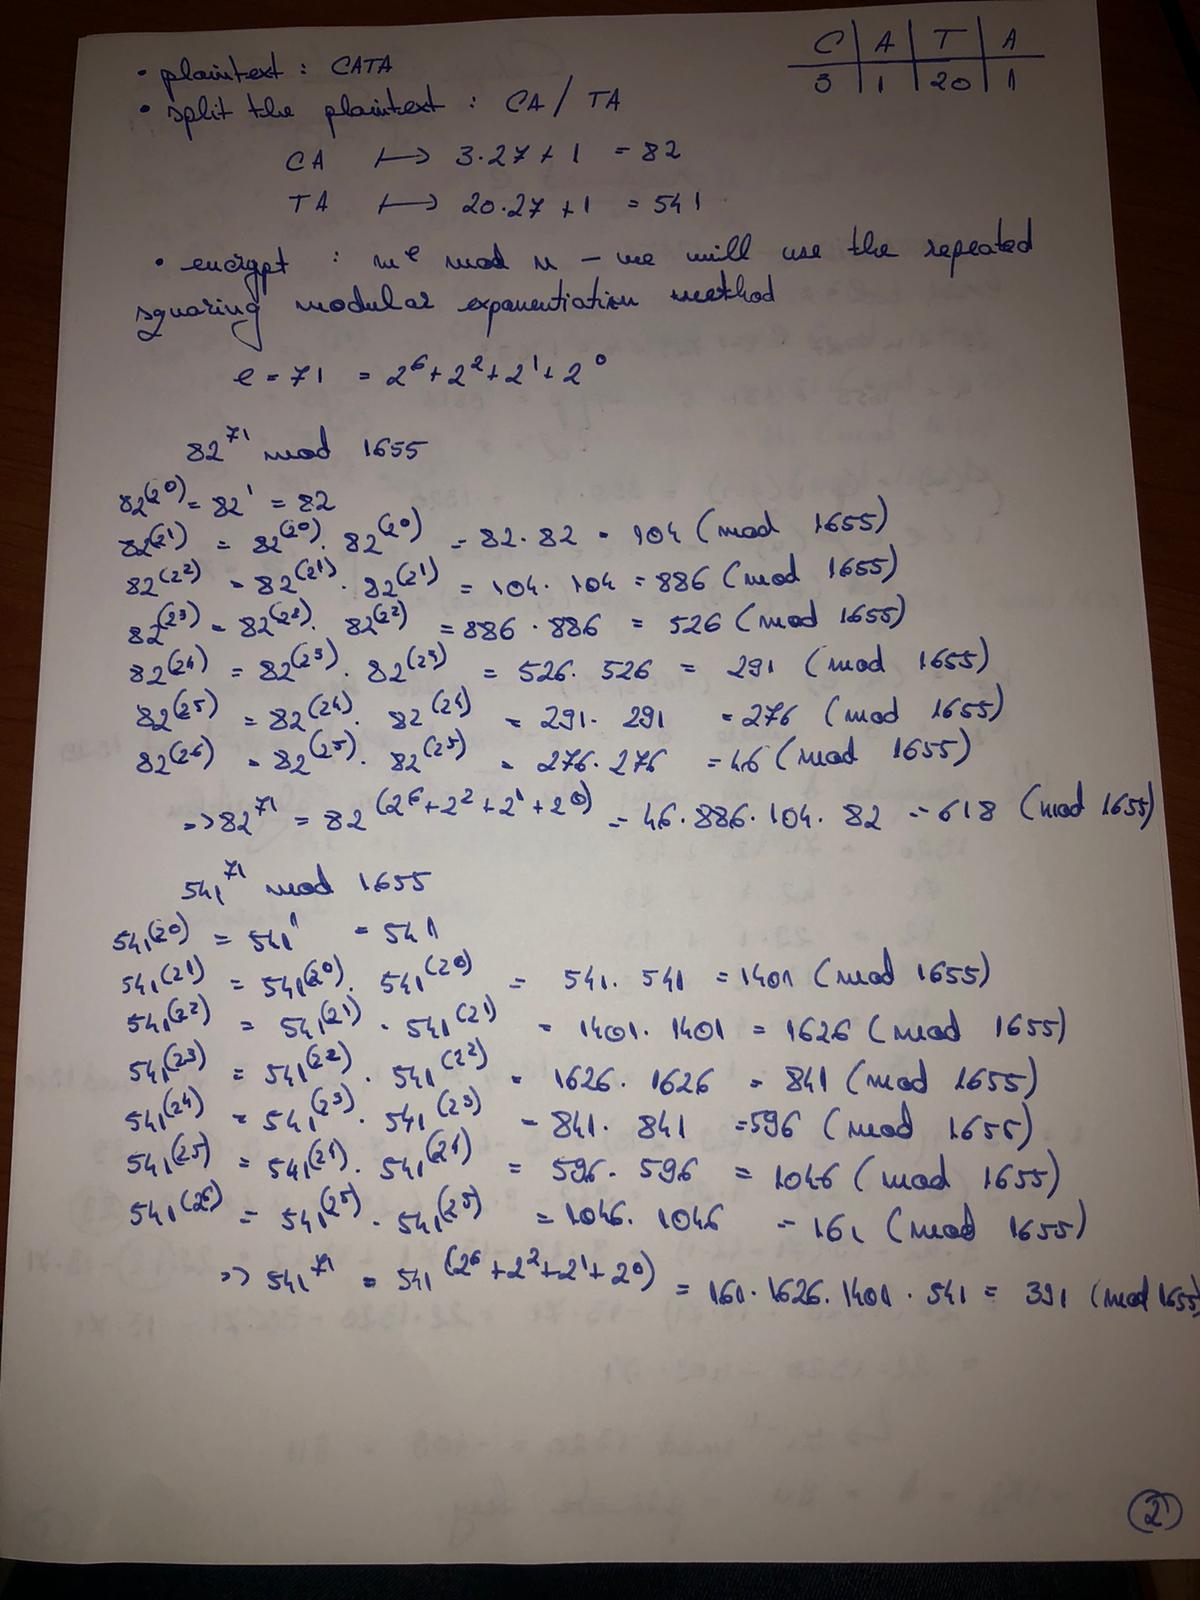 • plaintext : CATA
C | A | T | A
3 | 1 | 20 | 1
• split the plaintext : CA / TA
CA ↦ 3·27+1 = 82
TA ↦ 20·27+1 = 541
• encrypt : m^e mod n – we will use the repeated
squaring modular exponentiation method
e = 71 = 2^6 + 2^2 + 2^1 + 2^0
82^71 mod 1655
82^(2^0) = 82^1 = 82
82^(2^1) = 82^(2^0) · 82^(2^0) = 82·82 = 104 (mod 1655)
82^(2^2) = 82^(2^1) · 82^(2^1) = 104·104 = 886 (mod 1655)
82^(2^3) = 82^(2^2) · 82^(2^2) = 886·886 = 526 (mod 1655)
82^(2^4) = 82^(2^3) · 82^(2^3) = 526·526 = 291 (mod 1655)
82^(2^5) = 82^(2^4) · 82^(2^4) = 291·291 = 276 (mod 1655)
82^(2^6) = 82^(2^5) · 82^(2^5) = 276·276 = 46 (mod 1655)
=> 82^71 = 82^(2^6+2^2+2^1+2^0) = 46·886·104·82 = 618 (mod 1655)
541^71 mod 1655
541^(2^0) = 541^1 = 541
541^(2^1) = 541^(2^0) · 541^(2^0) = 541·541 = 1401 (mod 1655)
541^(2^2) = 541^(2^1) · 541^(2^1) = 1401·1401 = 1626 (mod 1655)
541^(2^3) = 541^(2^2) · 541^(2^2) = 1626·1626 = 841 (mod 1655)
541^(2^4) = 541^(2^3) · 541^(2^3) = 841·841 = 596 (mod 1655)
541^(2^5) = 541^(2^4) · 541^(2^4) = 596·596 = 1046 (mod 1655)
541^(2^6) = 541^(2^5) · 541^(2^5) = 1046·1046 = 161 (mod 1655)
=> 541^71 = 541^(2^6+2^2+2^1+2^0) = 161·1626·1401·541 = 391 (mod 1655)
2